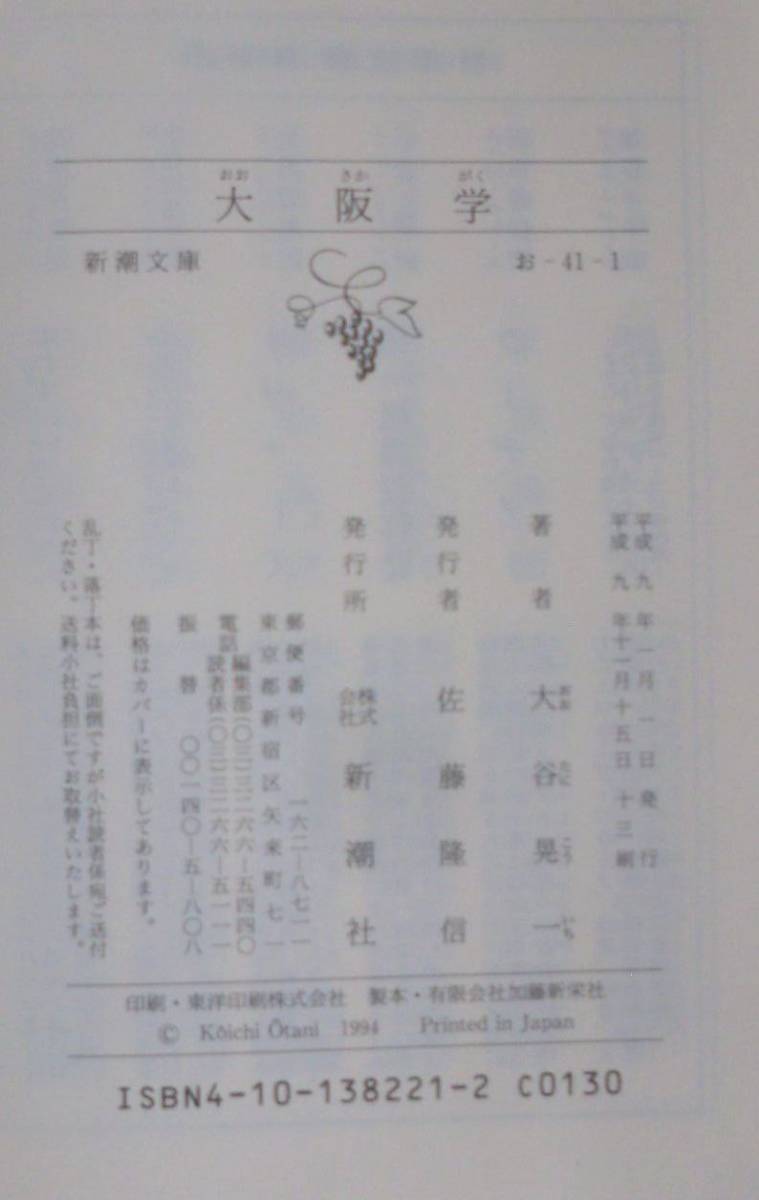 おお さか がく
大阪学
新潮文庫
お-41-1
平成九年一月一日発行
平成九年十一月十五日十三刷
著者 大谷晃一
おお たに こう いち
発行者 佐藤隆信
発行所 株式会社 新潮社
郵便番号 一六二―八七一一
東京都新宿区矢来町七一
電話 編集部(〇三)三二六六―五四四〇
読者係(〇三)三二六六―五一一一
振替 〇〇一四〇―五―八〇八
価格はカバーに表示してあります。
乱丁・落丁本は、ご面倒ですが小社読者係宛ご送付
ください。送料小社負担にてお取替えいたします。
印刷・東洋印刷株式会社 製本・有限会社加藤新栄社
© Kôichi Ôtani 1994 Printed in Japan
ISBN4-10-138221-2 C0130